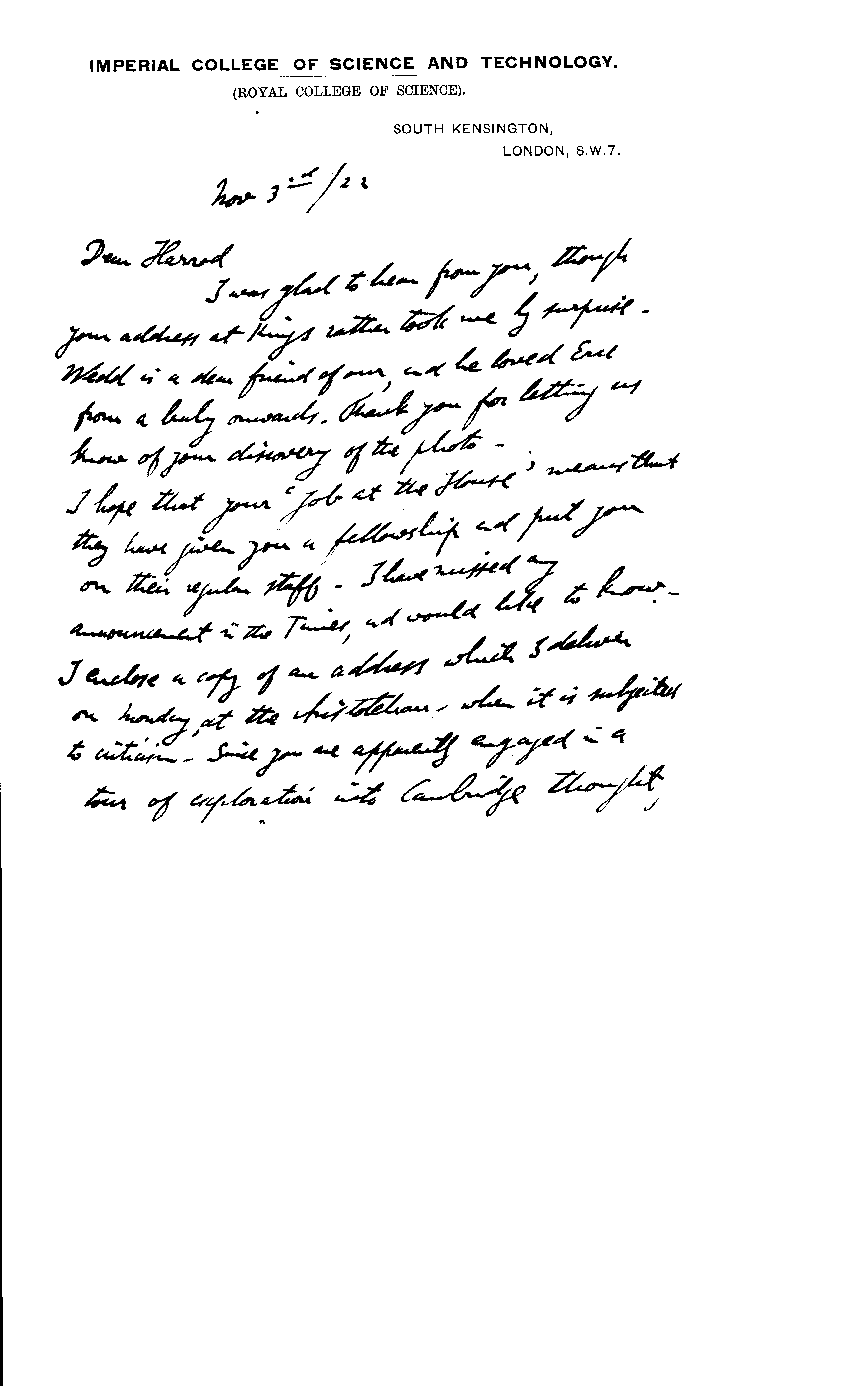 IMPERIAL COLLEGE OF SCIENCE AND TECHNOLOGY.
(ROYAL COLLEGE OF SCIENCE).
SOUTH KENSINGTON,
LONDON, S.W.7.
Nov 3rd/22
Dear Harrod
I was glad to hear from you, though
your address at Kings rather took me by surprise -
Wedd is a dear friend of our, and he loved Eric
from a baby onwards. Thank you for letting us
know of your discovery of the photo -
I hope that your 'Job at the House' means that
they have given you a fellowship and put you
on their regular staff - I have missed any
announcement in the Times, and would like to know -
I enclose a copy of an address which I deliver
on Monday, at the Aristotelian - when it is subjected
to criticism - Since you are apparently engaged in a
tour of exploration into Cambridge thought,